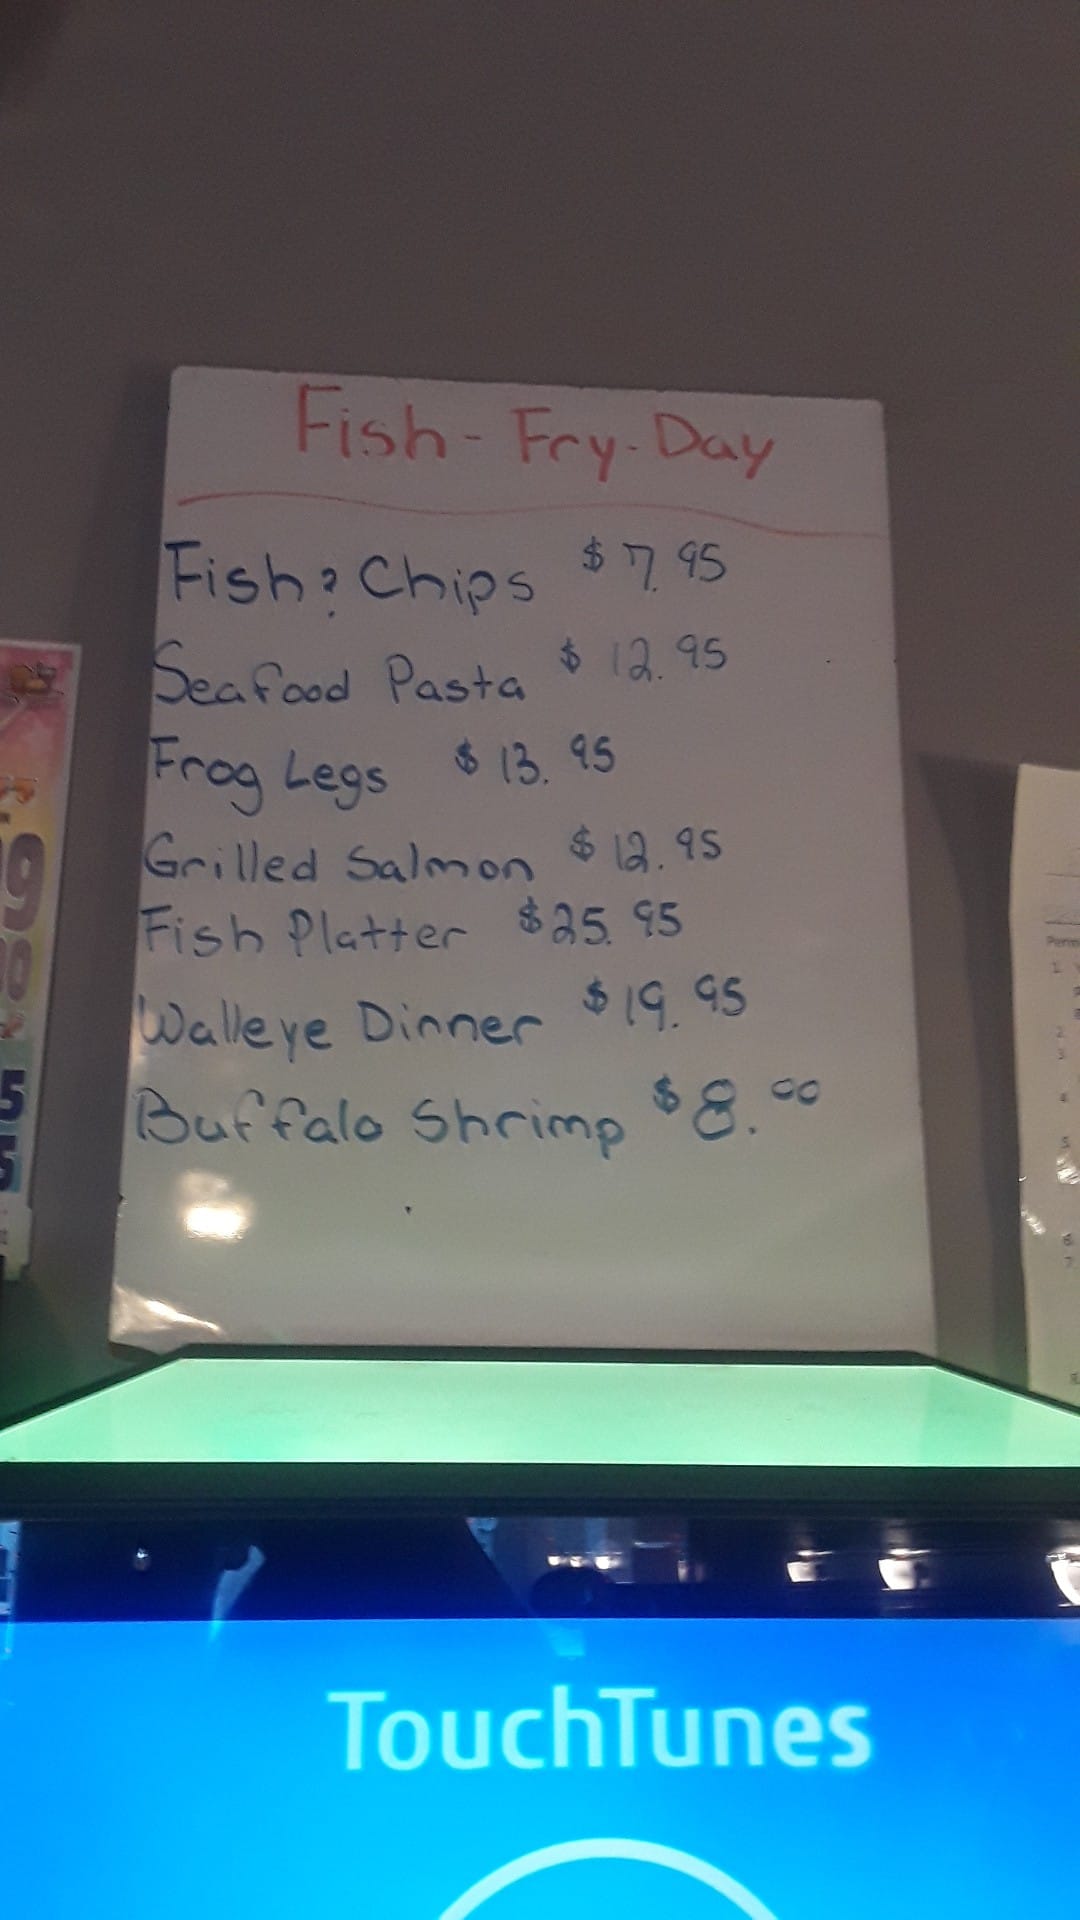 Fish-Fry-Day
Fish & Chips $7.95
Seafood Pasta $12.95
Frog Legs $13.95
Grilled Salmon $12.95
Fish Platter $25.95
Walleye Dinner $19.95
Buffalo Shrimp $8.00
TouchTunes